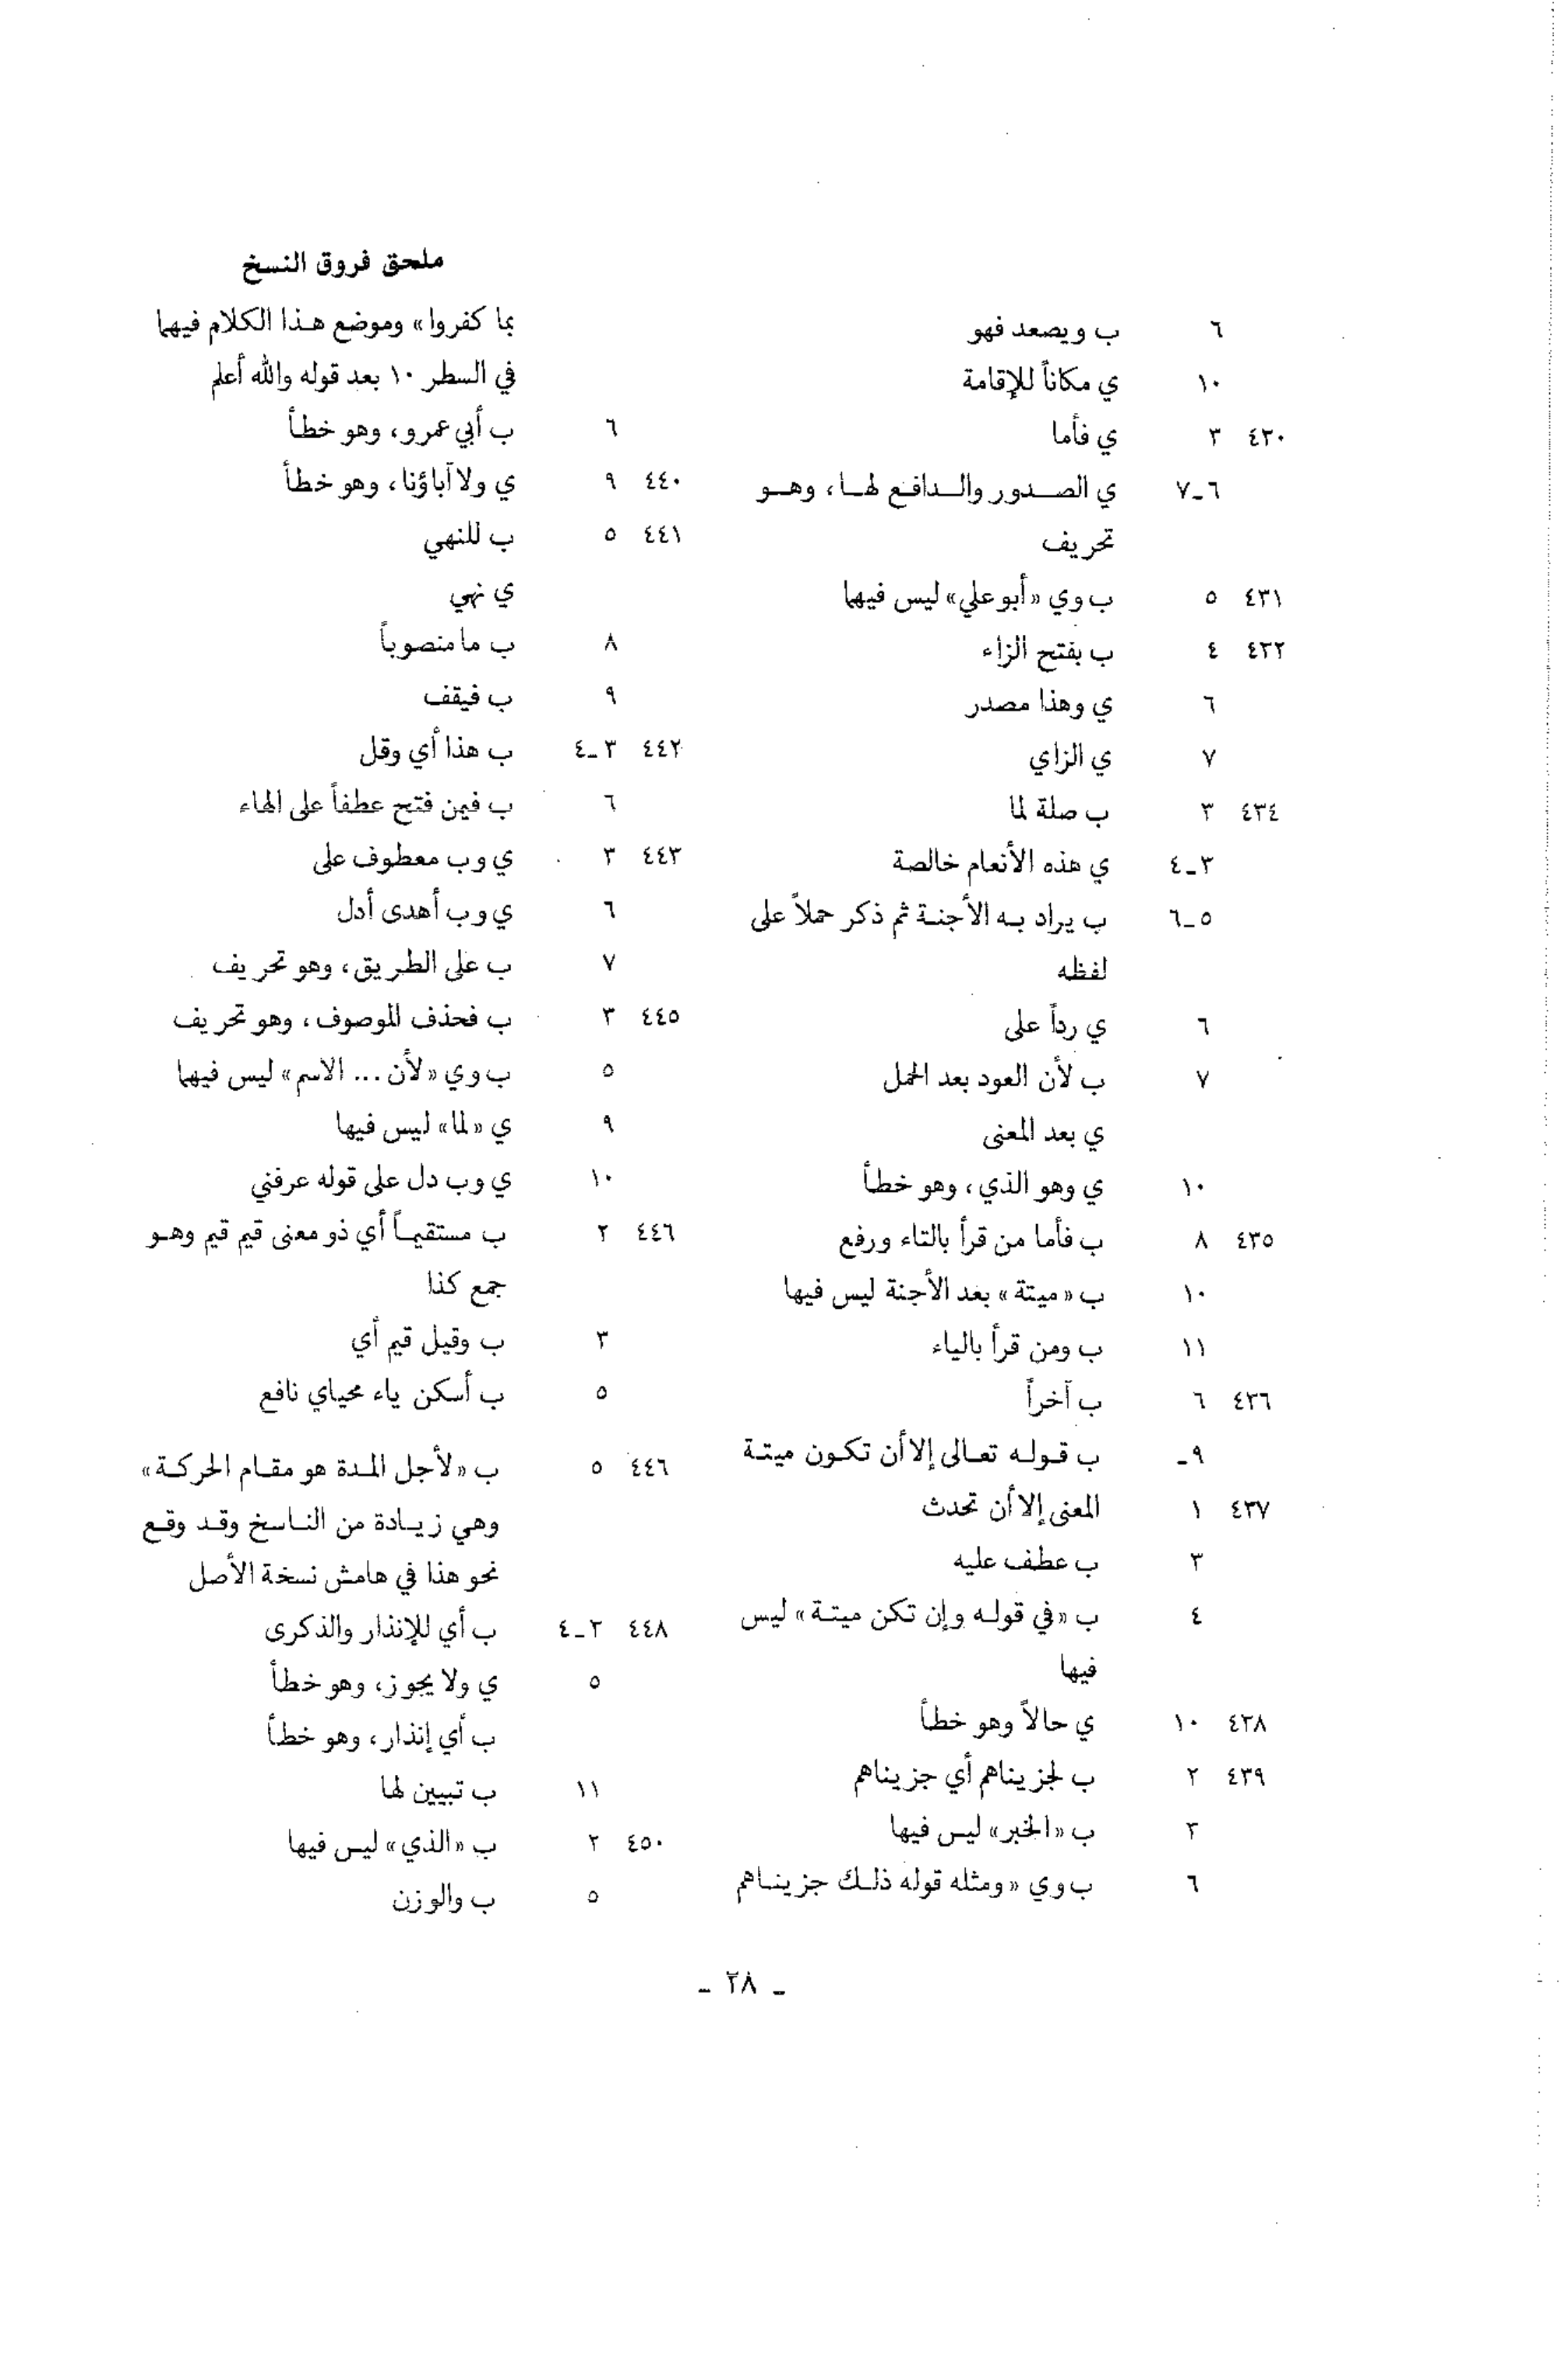 ملحق فروق النسخ
٦ ب ويصعد فهو
١٠ ي مكاناً للإقامة
٤٣٠ ٣ ي فأما
٦ـ٧ ي الصدور والدافع لها، وهو
تحريف
٤٣١ ٥ ب وي «أبو علي» ليس فيها
٤٣٢ ٤ ب بفتح الزاء
٦ ي وهذا مصدر
٧ ي الزاي
٤٣٤ ٣ ب صلة لما
٣ـ٤ ي هذه الأنعام خالصة
٥ـ٦ ب يراد به الأجنة ثم ذكر حملاً على
لفظه
٦ ي رداً على
٧ ب لأن العود بعد الحمل
ي بعد المعنى
١٠ ي وهو الذي، وهو خطأ
٤٣٥ ٨ ب فأما من قرأ بالتاء ورفع
١٠ ب «ميتة» بعد الأجنة ليس فيها
١١ ب ومن قرأ بالياء
٤٣٦ ٦ ب آخراً
٩ـ ب قوله تعالى إلا أن تكون ميتة
٤٣٧ ١ المعنى إلا أن تحدث
٣ ب عطف عليه
٤ ب «في قوله وإن تكن ميتة» ليس
فيها
٤٣٨ ١٠ ي حالاً وهو خطأ
٤٣٩ ٢ ب لجزيناهم أي جزيناهم
٣ ب «الخبر» ليس فيها
٦ ب وي «ومثله قوله ذلك جزيناهم
بما كفروا» وموضع هذا الكلام فيها
في السطر ١٠ بعد قوله والله أعلم
٦ ب أبي عمرو، وهو خطأ
٤٤٠ ٩ ي ولا آباؤنا، وهو خطأ
٤٤١ ٥ ب للنهي
ي نهي
٨ ب ما منصوباً
٩ ب فيقف
٤٤٢ ٣ـ٤ ب هذا أي وقل
٦ ب فيمن فتح عطفاً على الهاء
٤٤٣ ٣ ي وب معطوف على
٦ ي وب أهدى أدل
٧ ب على الطريق، وهو تحريف
٤٤٥ ٣ ب فحذف الموصوف، وهو تحريف
٥ ب وي «لأن ... الاسم» ليس فيها
٩ ي «لما» ليس فيها
١٠ ي وب دل على قوله عرفني
٤٤٦ ٢ ب مستقيماً أي ذو معنى قيم قيم وهو
جمع كذا
٣ ب وقيل قيم أي
٥ ب أسكن ياء محياي نافع
٤٤٦ ٥ ب «لأجل المدة هو مقام الحركة»
وهي زيادة من الناسخ وقد وقع
نحو هذا في هامش نسخة الأصل
٤٤٨ ٢ـ٤ ب أي للإنذار والذكرى
٥ ي ولا يجوز، وهو خطأ
ب أي إنذار، وهو خطأ
١١ ب تبيين لها
٤٥٠ ٢ ب «الذي» ليس فيها
٥ ب والوزن
ـ ٢٨ ـ